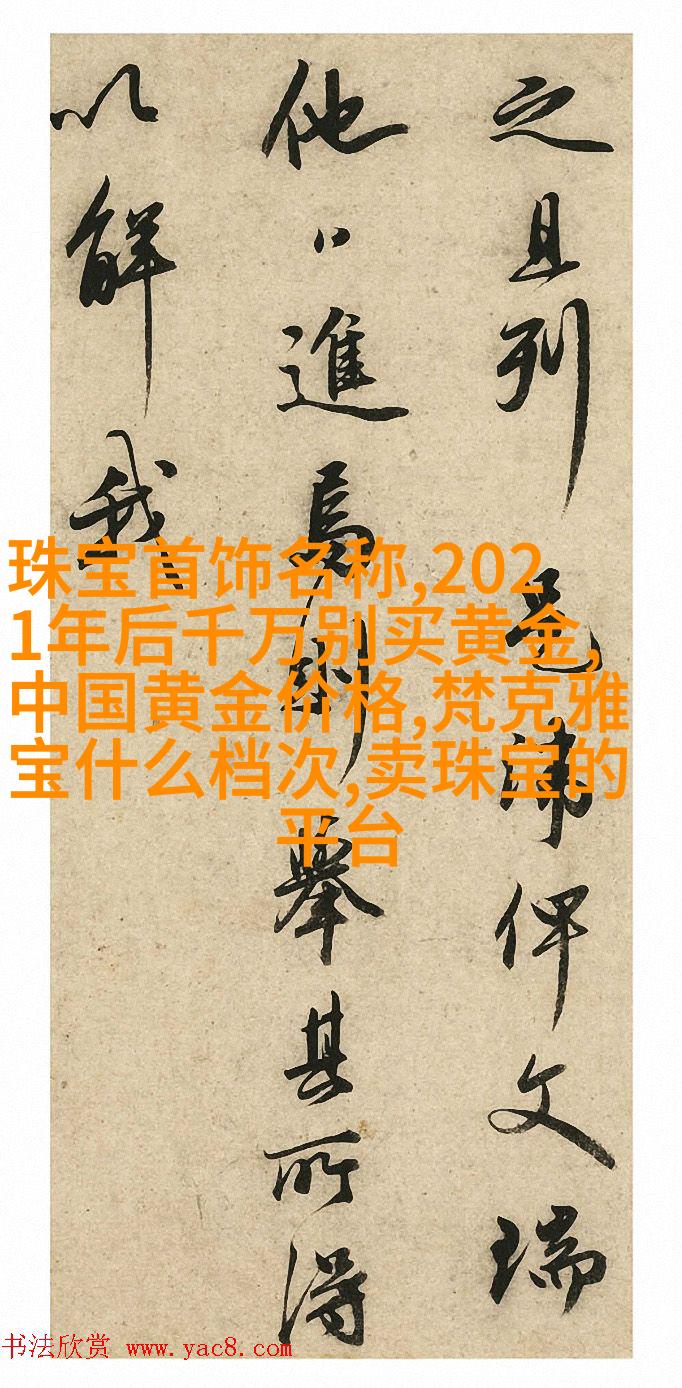 之且列俾文瑞
他日進焉則舉其所得
以解我
珠宝首饰名称,202
1年后千万别买黄金,
中国黄金价格,梵克雅
宝什么档次,卖珠宝的
平台
书法欣赏 www.yac8.com